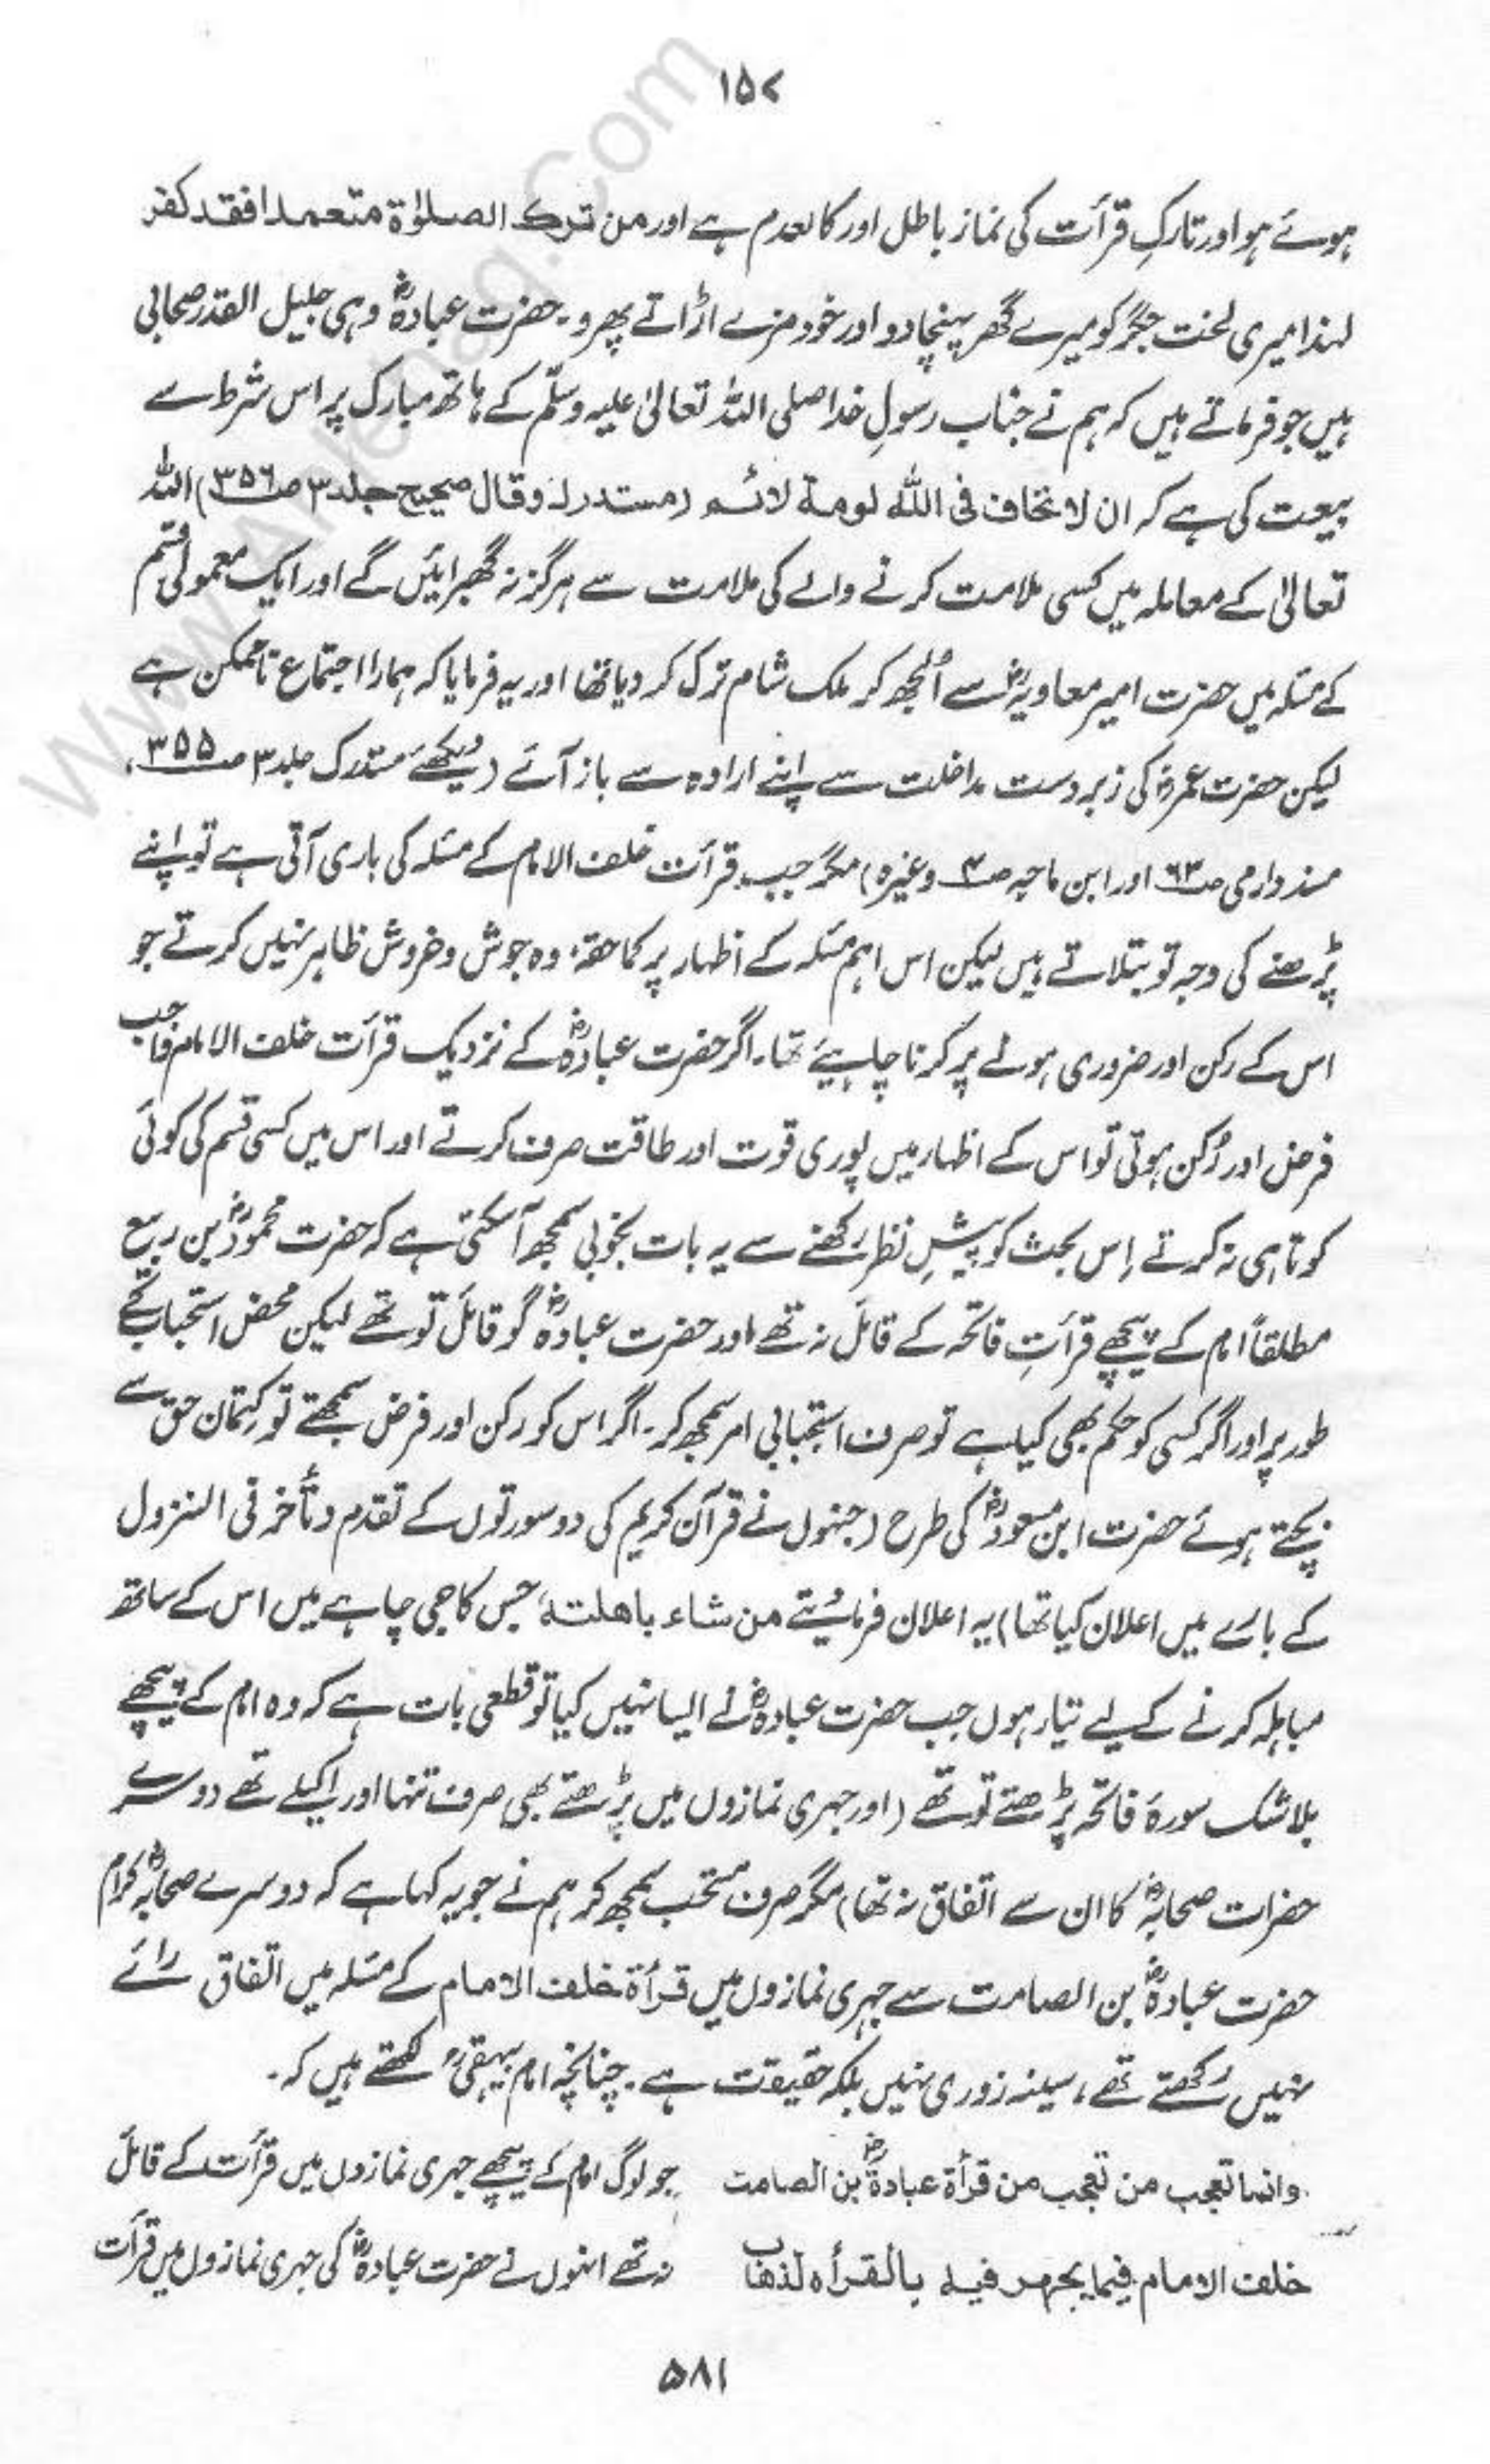 ۱۵۷
ہوئے ہو اور تارکِ قرأت کی نماز باطل اور کالعدم ہے اور من ترك الصلوٰة متعمدا فقد كفر
لہٰذا میری لختِ جگر کو میرے گھر پہنچا دو اور خود مزے اڑاتے پھرو۔ حضرت عبادہؓ وہی جلیل القدر صحابی
ہیں جو فرماتے ہیں کہ ہم نے جناب رسولِ خدا صلی اللہ تعالیٰ علیہ وسلّم کے ہاتھ مبارک پر اس شرط سے
بیعت کی ہے کہ ان لا نخاف فی اللہ لومة لائم (مستدرك وقال صحیح جلد ۳ صـ ۳۵۶) اللہ
تعالیٰ کے معاملہ میں کسی ملامت کرنے والے کی ملامت سے ہرگز نہ گھبرائیں گے اور ایک معمولی قسم
کے مسئلہ میں حضرت امیر معاویہؓ سے اُلجھ کر ملک شام ترک کر دیا تھا اور یہ فرمایا کہ ہمارا اجتماع ناممکن ہے
لیکن حضرت عمرؓ کی زبردست مداخلت سے اپنے ارادہ سے باز آئے (دیکھئے مستدرک جلد ۳ صـ ۳۵۵،
مسند دارمی صـ ۶۳ اور ابن ماجہ صـ ۳ وغیرہ) مگر جب قرأت خلف الامام کے مسئلہ کی باری آتی ہے تو اپنے
پڑھنے کی وجہ تو بتلاتے ہیں لیکن اس اہم مسئلہ کے اظہار پر کما حقہٗ وہ جوش وخروش ظاہر نہیں کرتے جو
اس کے رکن اور ضروری ہونے پر کرنا چاہیئے تھا۔ اگر حضرت عبادہؓ کے نزدیک قرأت خلف الامام واجب
فرض اور رُکن ہوتی تو اس کے اظہار میں پوری قوت اور طاقت صرف کرتے اور اس میں کسی قسم کی کوئی
کوتاہی نہ کرتے اِس بحث کو پیشِ نظر رکھنے سے یہ بات بخوبی سمجھ آ سکتی ہے کہ حضرت محمودؓ بن ربیع
مطلقاً امام کے پیچھے قرأتِ فاتحہ کے قائل نہ تھے اور حضرت عبادہؓ گو قائل تو تھے لیکن محض استحباب کے
طور پر اور اگر کسی کو حکم بھی کیا ہے تو صرف استحبابی امر سمجھ کر۔ اگر اس کو رکن اور فرض سمجھتے تو کتمان حق سے
بچتے ہوئے حضرت ابن مسعودؓ کی طرح (جنہوں نے قرآن کریم کی دو سورتوں کے تقدم و تأخر فی النزول
کے بارے میں اعلان کیا تھا) یہ اعلان فرما دیتے من شاء باھلتهٗ جس کا جی چاہے میں اس کے ساتھ
مباہلہ کرنے کے لیے تیار ہوں جب حضرت عبادہؓ نے ایسا نہیں کیا تو قطعی بات ہے کہ وہ امام کے پیچھے
بلاشک سورۃ فاتحہ پڑھتے تو تھے (اور جہری نمازوں میں پڑھتے بھی صرف تنہا اور اکیلے تھے دوسرے
حضرات صحابہؓ کا ان سے اتفاق نہ تھا) مگر صرف مستحب سمجھ کر ہم نے جو یہ کہا ہے کہ دوسرے صحابہؓ کرام
حضرت عبادہؓ بن الصامت سے جہری نمازوں میں قرأة خلف الامام کے مسئلہ میں اتفاق رائے
نہیں رکھتے تھے، سینہ زوری نہیں بلکہ حقیقت ہے۔ چنانچہ امام بیہقیؒ لکھتے ہیں کہ۔
وانما تعجب من تعجب من قرأة عبادةؓ بن الصامت
خلف الامام فیما یجھر فیہ بالقرأة لذھاب
جو لوگ امام کے پیچھے جہری نمازوں میں قرأت کے قائل
نہ تھے انہوں نے حضرت عبادہؓ کی جہری نمازوں میں قرأت
۵۸۱